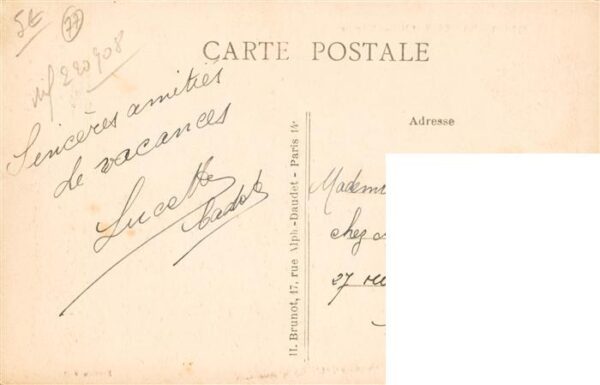 5€
77
220908
CARTE POSTALE
Sincères amitiés
de vacances
Lucette
Cadot
H. Brunot, 17, rue Alph-Daudet - Paris 14e
Adresse
Madem
chez
27 rue